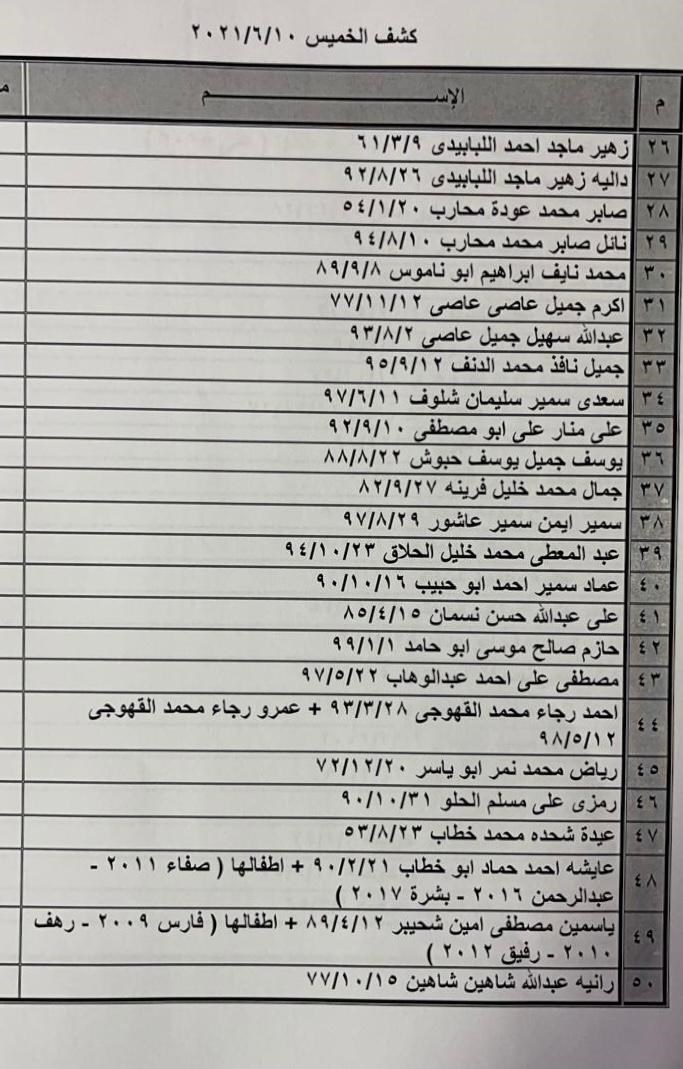 كشف الخميس ٢٠٢١/٦/١٠
م الإســـــــــــــم م
٢٦ زهير ماجد احمد اللبابيدى ٦١/٣/٩
٢٧ داليه زهير ماجد اللبابيدى ٩٢/٨/٢٦
٢٨ صابر محمد عودة محارب ٥٤/١/٢٠
٢٩ نائل صابر محمد محارب ٩٤/٨/١٠
٣٠ محمد نايف ابراهيم ابو ناموس ٨٩/٩/٨
٣١ اكرم جميل عاصى عاصى ٧٧/١١/١٢
٣٢ عبدالله سهيل جميل عاصى ٩٣/٨/٢
٣٣ جميل نافذ محمد الدنف ٩٥/٩/١٢
٣٤ سعدى سمير سليمان شلوف ٩٧/٦/١١
٣٥ على منار على ابو مصطفى ٩٢/٩/١٠
٣٦ يوسف جميل يوسف حبوش ٨٨/٨/٢٢
٣٧ جمال محمد خليل فرينه ٨٢/٩/٢٧
٣٨ سمير ايمن سمير عاشور ٩٧/٨/٢٩
٣٩ عبد المعطى محمد خليل الحلاق ٩٤/١٠/٢٣
٤٠ عماد سمير احمد ابو حبيب ٩٠/١٠/١٦
٤١ على عبدالله حسن نسمان ٨٥/٤/١٥
٤٢ حازم صالح موسى ابو حامد ٩٩/١/١
٤٣ مصطفى على احمد عبدالوهاب ٩٧/٥/٢٢
٤٤ احمد رجاء محمد القهوجى ٩٣/٣/٢٨ + عمرو رجاء محمد القهوجى
٩٨/٥/١٢
٤٥ رياض محمد نمر ابو ياسر ٧٢/١٢/٢٠
٤٦ رمزى على مسلم الحلو ٩٠/١٠/٣١
٤٧ عيدة شحده محمد خطاب ٥٣/٨/٢٣
٤٨ عايشه احمد حماد ابو خطاب ٩٠/٢/٢١ + اطفالها ( صفاء ٢٠١١ -
عبدالرحمن ٢٠١٦ - بشرة ٢٠١٧ )
٤٩ ياسمين مصطفى امين شحيبر ٨٩/٤/١٢ + اطفالها ( فارس ٢٠٠٩ - رهف
٢٠١٠ - رفيق ٢٠١٢ )
٥٠ رانيه عبدالله شاهين شاهين ٧٧/١٠/١٥